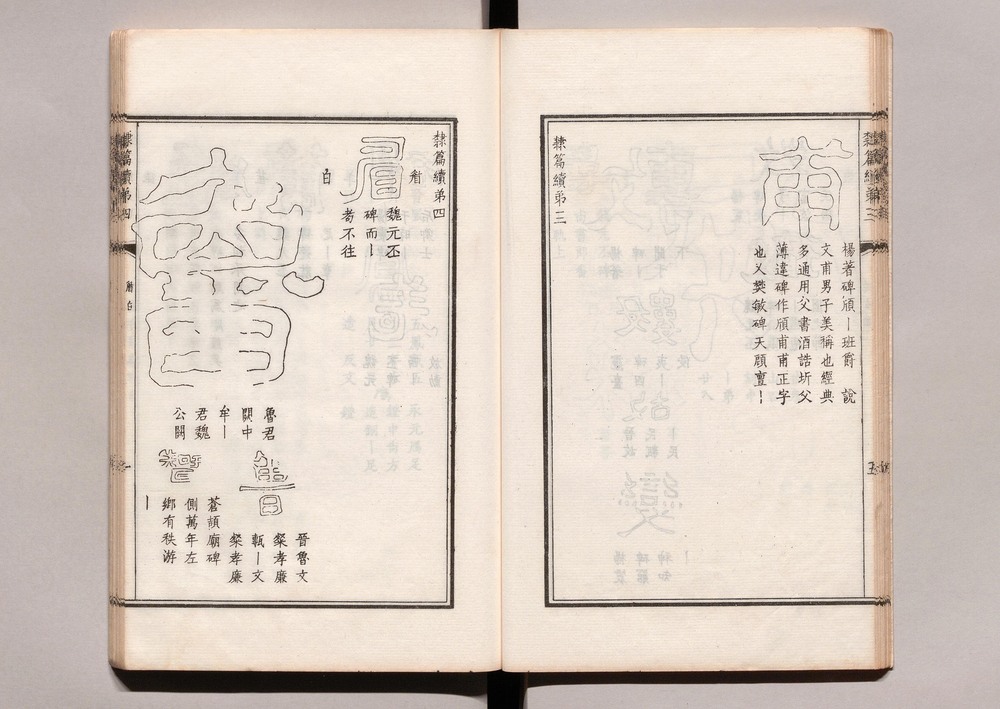 甫
楊著碑頎｜班爵　說
文甫男子美稱也經典
多通用父書酒誥圻父
薄違碑作頎甫甫正字
也乂樊敏碑天顧亶｜
隸篇續第三
隸篇續第四
眉
魏元丕
碑而｜
耇不往
白
魯
魯君
闕中
牟｜
君魏
公闕
晉魯文
粲孝廉
甎｜文
粲孝廉
蒼頡廟碑
側萬年左
鄉有秩游
｜
隸篇續第四